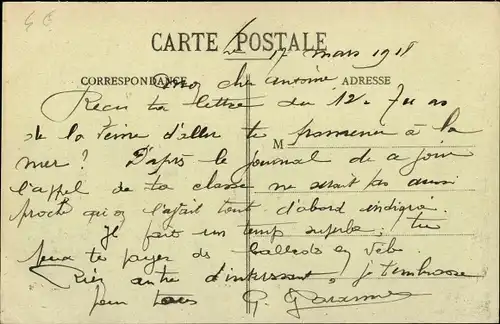 CARTE POSTALE
le 17 mars 1918
CORRESPONDANCE
ADRESSE
Mon cher Antoine
Reçu ta lettre du 12. Tu as
de la veine d'aller te promener à la
M
mer? D'après le journal de ce jour
l'appel de ta classe ne serait pas aussi
proche qu'on l'avait tout d'abord indiqué.
Il fait un temps superbe, tu
peux te payer des ballades en vélo.
Rien autre d'intéressant, je t'embrasse
pour tous